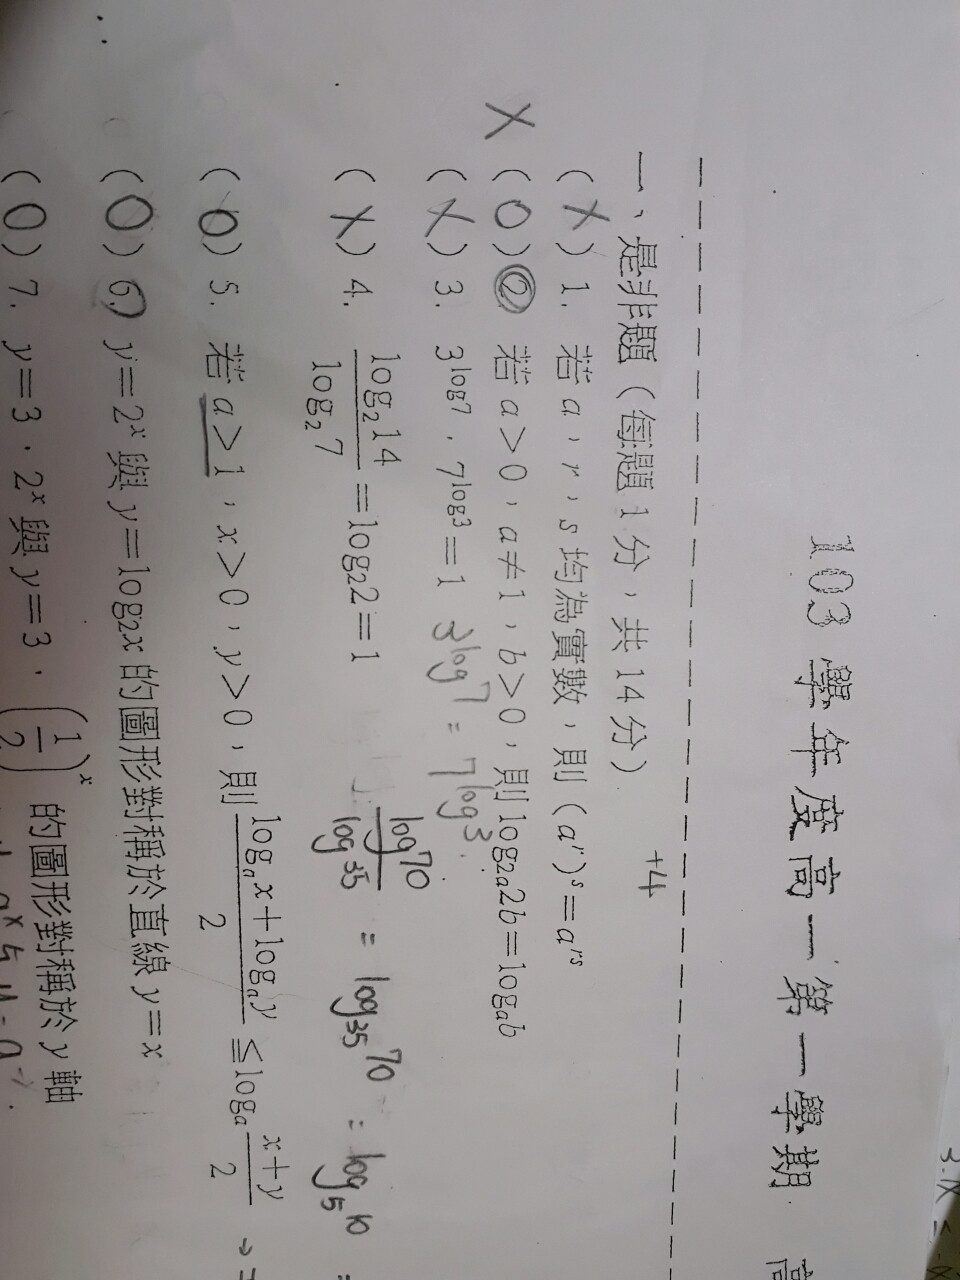 103 學年度高一第一學期 高
一、是非題(每題1分,共14分) +4
(X) 1. 若 a,r,s 均為實數,則 (aʳ)ˢ=aʳˢ
X (O) ② 若 a>0,a≠1,b>0,則 log₂ₐ2b=logₐb
(X) 3. 3^{log7}.7^{log3}=1 3^{log7} = 7^{log3}.
(X) 4. \frac{log₂14}{log₂7}=log₂2=1 \frac{log70}{log35} = log₃₅70 = log₅10 =
(O) 5. 若 a>1,x>0,y>0,則 \frac{logₐx+logₐy}{2} ≦ logₐ\frac{x+y}{2} →
(O) 6. y=2ˣ 與 y=log₂x 的圖形對稱於直線 y=x
(O) 7. y=3.2ˣ 與 y=3.(\frac{1}{2})ˣ 的圖形對稱於 y 軸